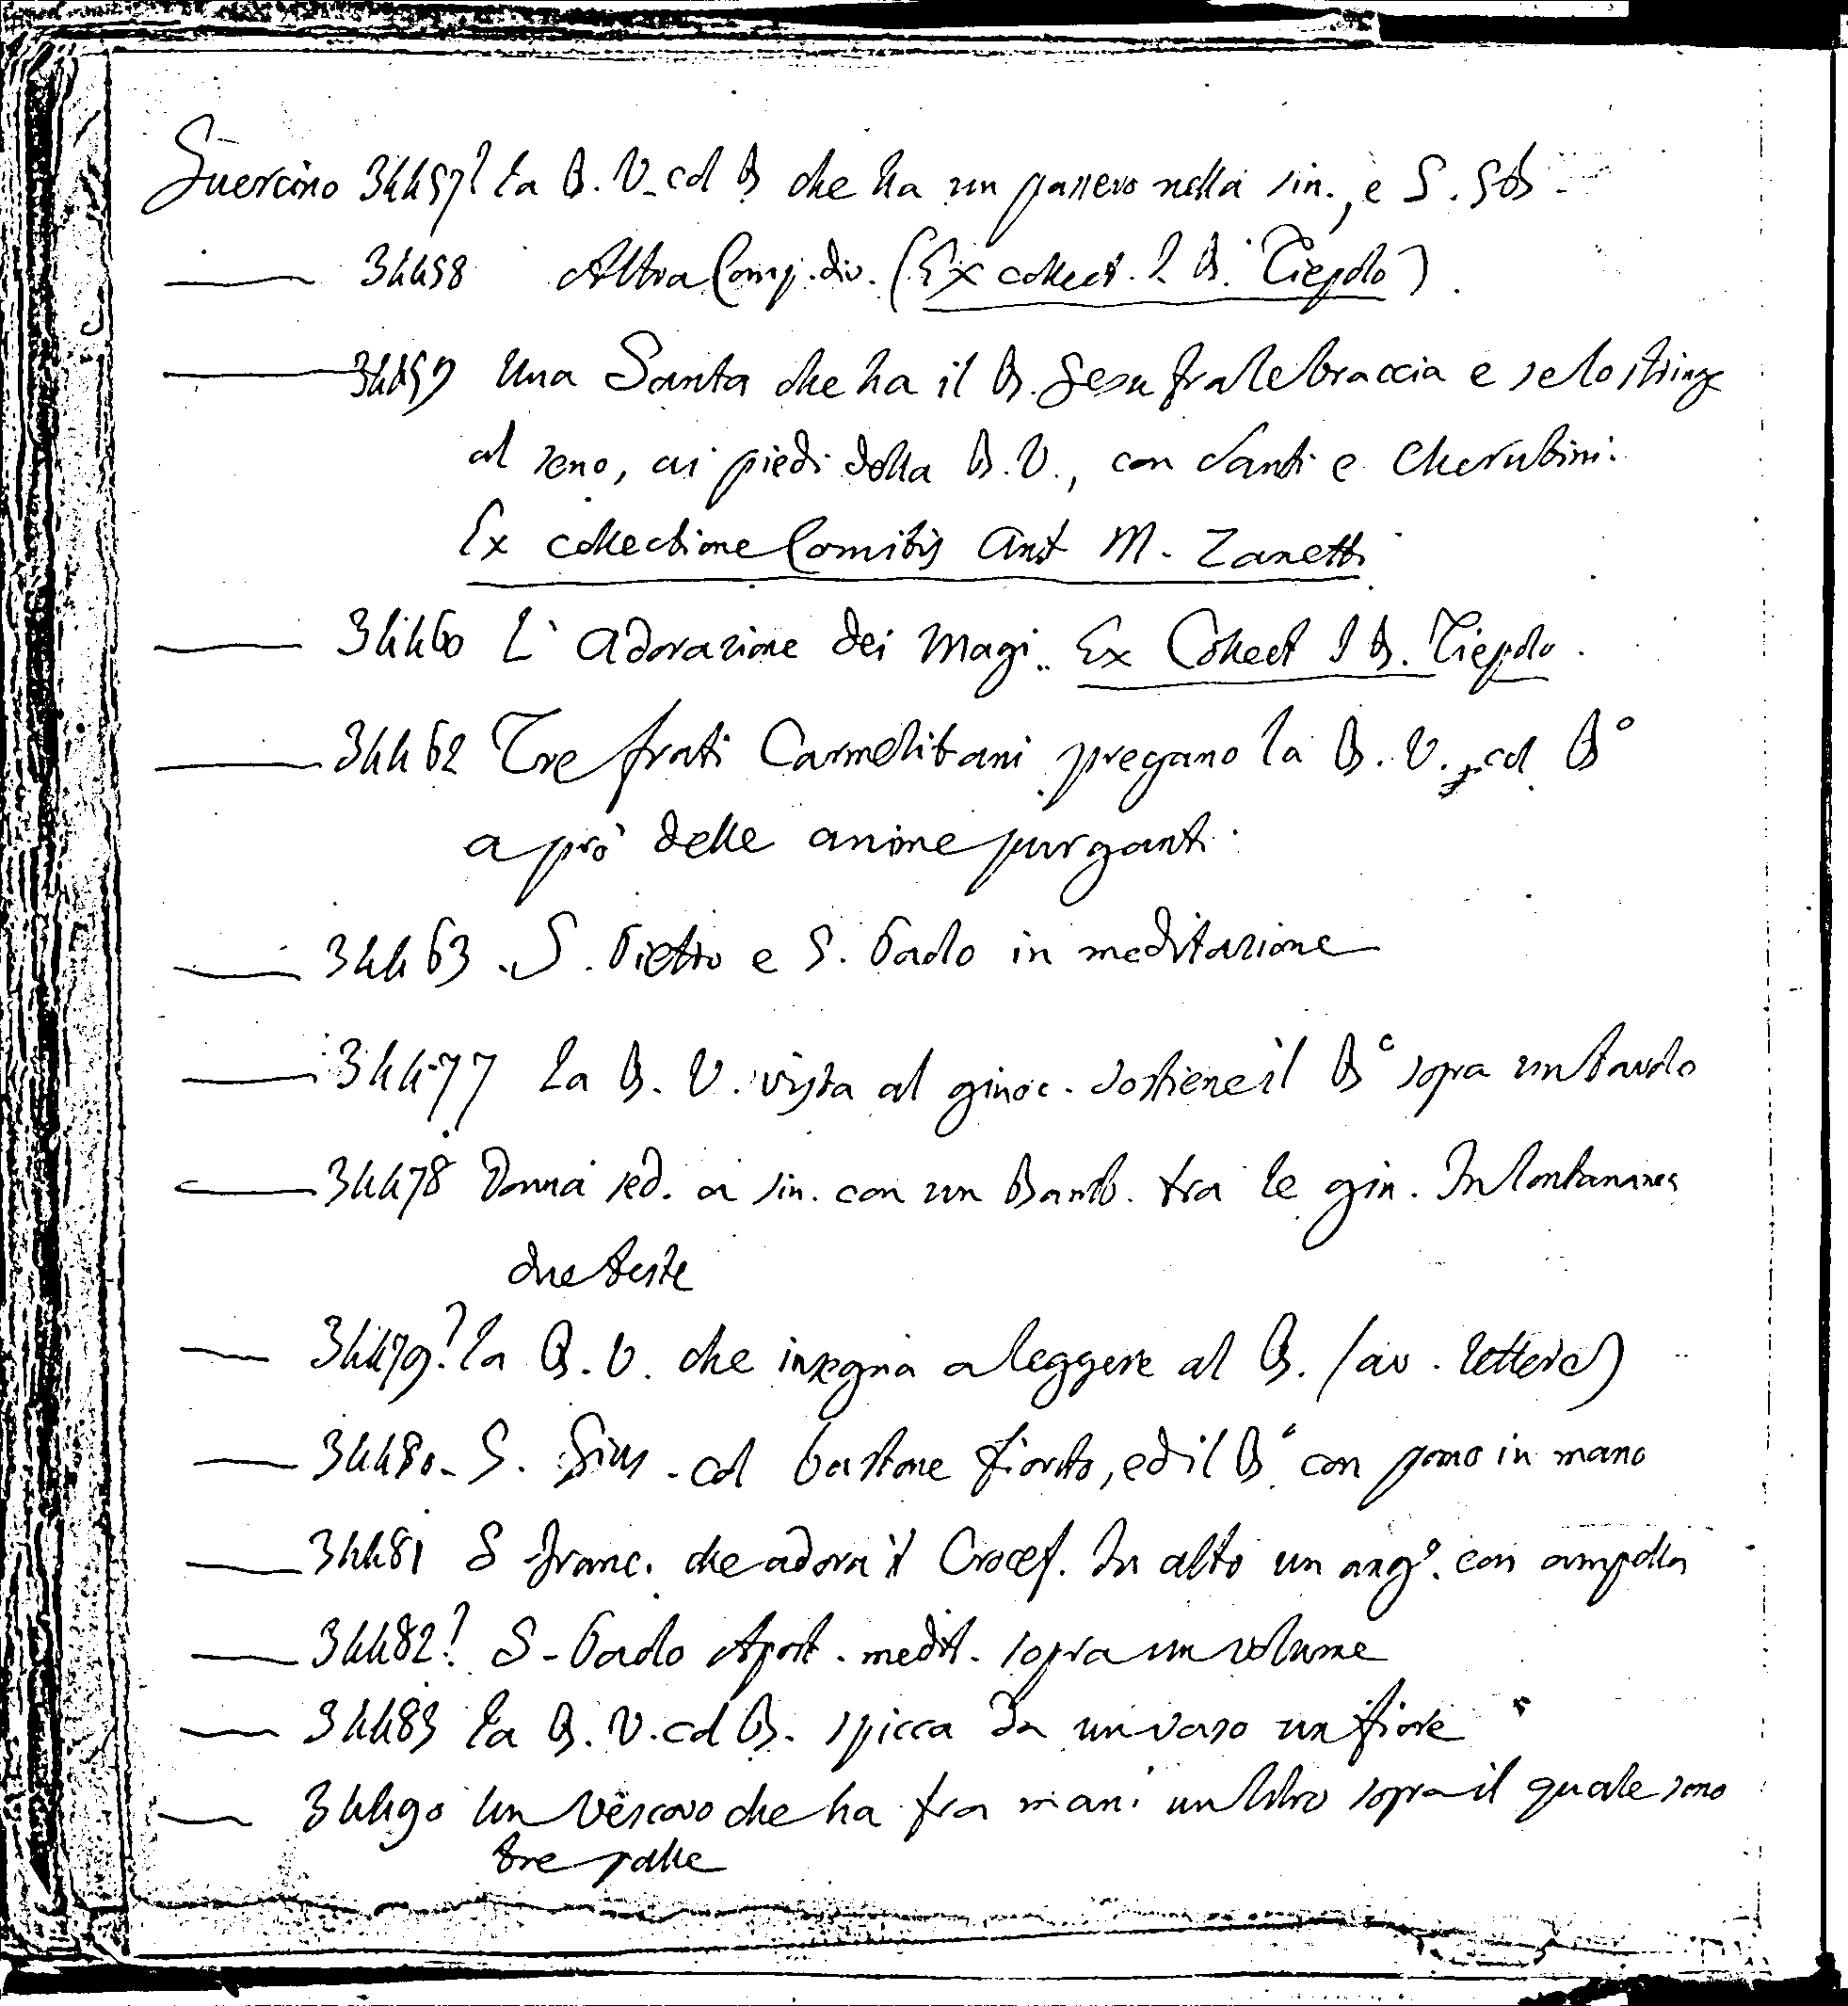 Guercino 34457? La B. V. col B che ha un passero nella sin., e S. Gb -
—— 34458 Altra Comp. div. (Ex collect. I B. Tiepolo)
—— 34459 Una Santa che ha il B. Gesu fra le braccia e se lo stringe
al seno, ai piedi della B. V., con Santi e Cherubini.
Ex collectione Comitis Ant M. Zanetti
—— 34460 L'Adorazione dei Magi.. Ex Collect I B. Tiepolo.
—— 34462 Tre frati Carmelitani pregano la B. V. col B°
a prò delle anime purganti.
—— 34463. S. Pietro e S. Paolo in meditazione
—— 34477 La B. V. vista al ginoc. sostiene il B° sopra un tavolo
—— 34478 Donna sed. a sin. con un Bamb. tra le gin. In lontananza
due teste
—— 34479? La B. V. che insegna a leggere al B. (av. lettere)
—— 34480- S. Gius - col bastone fiorito, ed il B° con pomo in mano
—— 34481 S Franc. che adora il Crocef. In alto un ang°. con ampolla
—— 34482? S - Paolo Apost. medit. sopra un volume
—— 34483 La B. V. col B. spicca da un vaso un fiore
—— 34490 Un Vescovo che ha fra mani un libro sopra il quale sono
tre palle